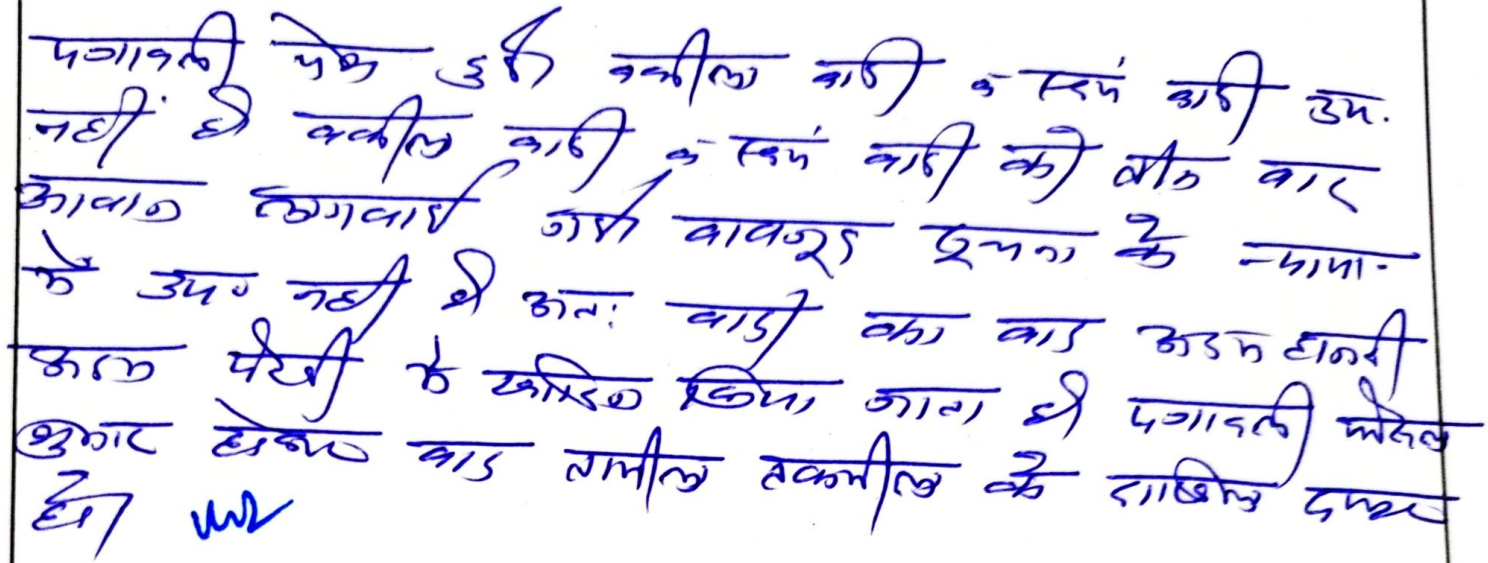 पत्रावली पेश हुई वकील वादी व स्वयं वादी उप.
नहीं है वकील वादी व स्वयं वादी को तीन बार
आवाज लगवाई गई बावजूद सूचना के न्याया.
में उप० नहीं है अतः वादी का वाद अदम हाजरी
अदम पैरवी में खारिज किया जाता है पत्रावली फैसल
शुमार होकर बाद तामील तकमील के दाखिल दफ्तर
हो।